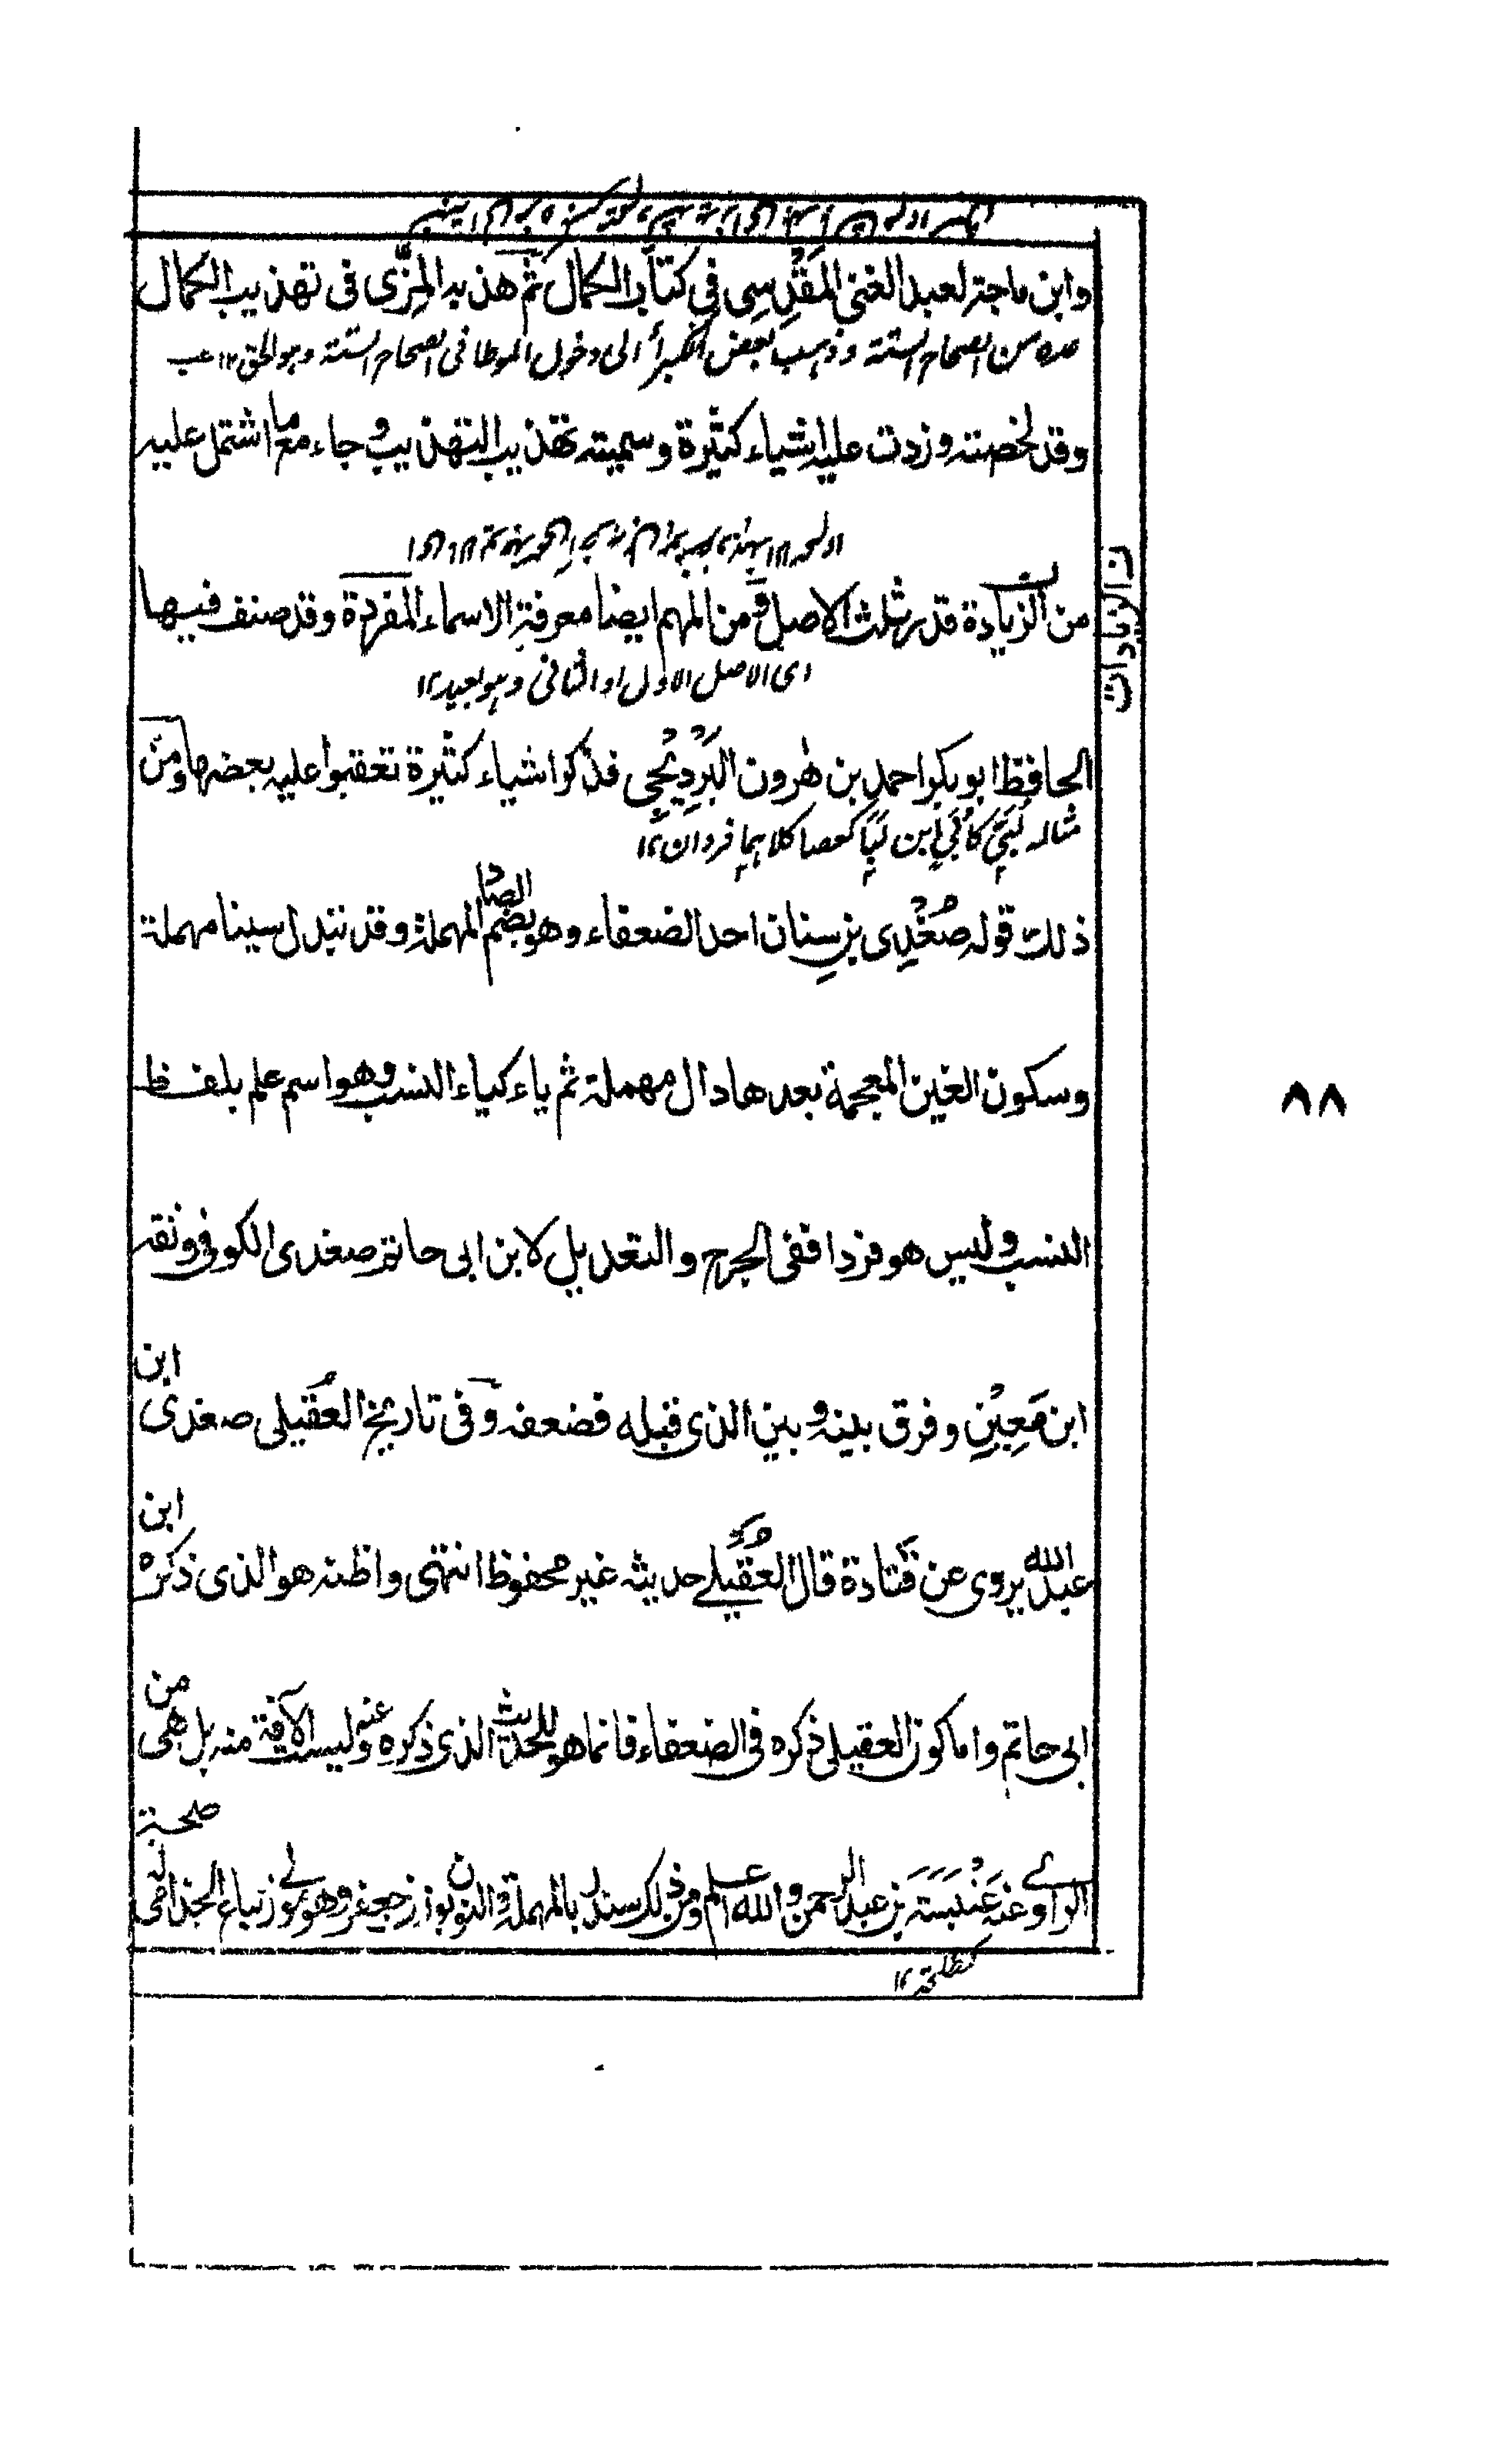 وابن ماجة لعبد الغني المَقْدِسِي في كتاب الكمال ثم هذبه المِزّي في تهذيب الكمال
عده من الصحاح الستة وذهب بعض الكبرأ الى دخول الموطا في الصحاح الستة وهو الحق ١٢ عب
وقد لخصته وزدت عليه اشياء كثيرة وسميته تهذيب التهذيب وجاء مع ما اشتمل عليه
من الزيادة قدر ثلث الاصل ومن المهم ايضا معرفة الاسماء المفردة وقد صنف فيها
ن الزيادات
اى الاصل الاول او الثانى وهو بعيد ١٢
الحافظ ابو بكر احمد بن هٰرون البَرْدِيْجِي فذكر اشياء كثيرة تعقبوا عليه بعضها ومن
مثاله لُبَيّ كأُبَيّ ابن لَبَا كعصا كلاهما فردان ١٢
ذلك قوله صُغْدِى بن سِنان احد الضعفاء وهو بضم الصاد المهملة وقد تبدل سينا مهملة
وسكون الغين المعجمة بعدها دال مهملة ثم ياء كياء النسب وهو اسم علم بلفظ
٨٨
النسب وليس هو فردا ففى الجرح والتعديل لابن ابى حاتم صغدى الكوفى وثقه
ابن مَعِيْنٍ وفرق بينه وبين الذى قبله فضعفه وفى تاريخ العُقَيلى صغدى ابن
عبد الله يروى عن قَتادة قال العُقَيلے حديثه غير محفوظ انتهى واظنه هو الذى ذكره ابن
ابى حاتم واما كون العقيلى ذكره فى الضعفاء فانما هو للحديث الذى ذكره عنه وليست الآفة منه بل هى من
الراوے عنه عَنْبَسَة بن عبد الرحمن والله اعلم ومن ذلك سندر بالمهملة والنون بوزن جعفر وهو مولى زنباع الجذامى له صحبة
كطلحة ١٢